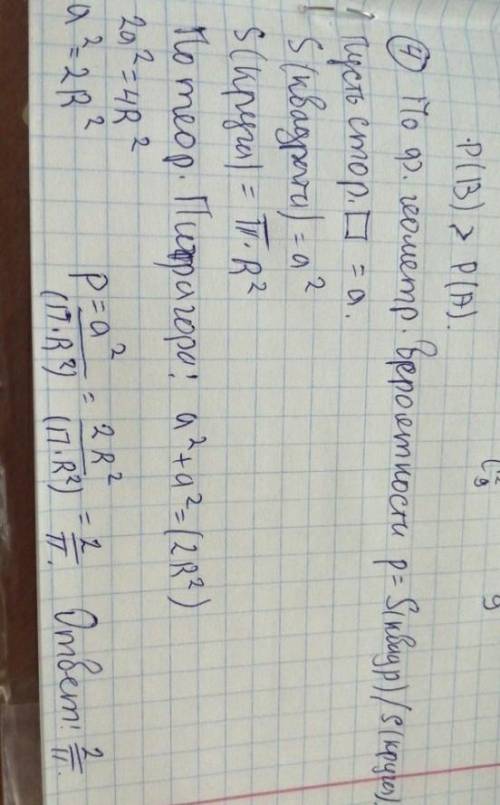 P(B) > P(A).
④ По ф. геометр. вероетности p = S(квадр) / S(круга)
Пусть стор. □ = a.
S(квадрата) = a²
S(круга) = π · R²
По теор. Пифагора: a² + a² = (2R²)
2a² = 4R²
a² = 2R²
p = a² / (π · R²) = 2R² / (π · R²) = 2/π. Ответ: 2/π.